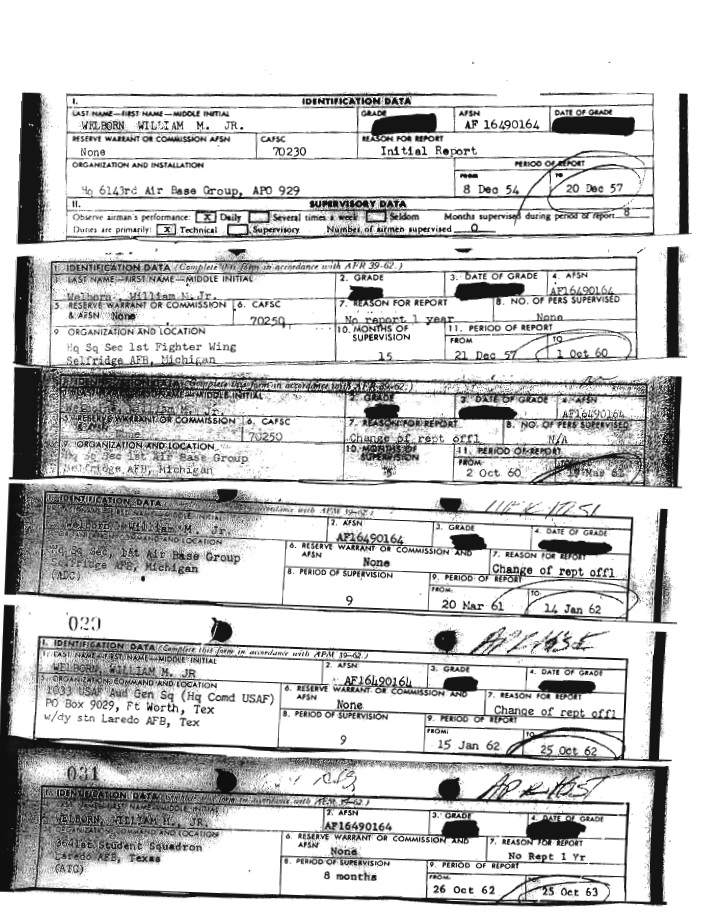 I. IDENTIFICATION DATA
LAST NAME—FIRST NAME—MIDDLE INITIAL GRADE AFSN DATE OF GRADE
WELBORN WILLIAM M. JR. AF 16490164
RESERVE WARRANT OR COMMISSION AFSN CAFSC REASON FOR REPORT
None 70230 Initial Report
ORGANIZATION AND INSTALLATION PERIOD OF REPORT
FROM TO
Hq 6143rd Air Base Group, APO 929 8 Dec 54 20 Dec 57
II. SUPERVISORY DATA
Observe airman's performance: X Daily Several times a week Seldom Months supervised during period of report 8
Duties are primarily: X Technical Supervisory Number of airmen supervised 0
1. IDENTIFICATION DATA (Complete this form in accordance with AFR 39-62.)
LAST NAME—FIRST NAME—MIDDLE INITIAL 2. GRADE 3. DATE OF GRADE 4. AFSN
Welborn, William M. Jr. AF16490164
5. RESERVE WARRANT OR COMMISSION & AFSN None 6. CAFSC 7. REASON FOR REPORT 8. NO. OF PERS SUPERVISED
70250 No report 1 year None
9. ORGANIZATION AND LOCATION 10. MONTHS OF SUPERVISION 11. PERIOD OF REPORT
Hq Sq Sec 1st Fighter Wing FROM TO
Selfridge AFB, Michigan 15 21 Dec 57 1 Oct 60
IDENTIFICATION DATA (Complete this form in accordance with AFR 39-62.)
MIDDLE INITIAL 2. GRADE 3. DATE OF GRADE 4. AFSN
William M. Jr. AF16490164
RESERVE WARRANT OR COMMISSION 6. CAFSC 7. REASON FOR REPORT 8. NO. OF PERS SUPERVISED
70250 Change of rept offl N/A
9. ORGANIZATION AND LOCATION 10. MONTHS OF SUPERVISION 11. PERIOD OF REPORT
Hq Sq Sec 1st Air Base Group FROM
Selfridge AFB, Michigan 2 Oct 60
IDENTIFICATION DATA (Complete this form in accordance with AFM 39-62.)
Welborn William M. Jr. 2. AFSN 3. GRADE 4. DATE OF GRADE
AF16490164
Hq Sq Sec, 1st Air Base Group 6. RESERVE WARRANT OR COMMISSION AND AFSN 7. REASON FOR REPORT
Selfridge AFB, Michigan None Change of rept offl
(ADC) 8. PERIOD OF SUPERVISION 9. PERIOD OF REPORT
FROM: TO:
9 20 Mar 61 14 Jan 62
020
1. IDENTIFICATION DATA (Complete this form in accordance with AFM 39-62.)
1. LAST NAME—FIRST NAME—MIDDLE INITIAL 2. AFSN 3. GRADE 4. DATE OF GRADE
WELBORN, WILLIAM M. JR AF16490164
5. ORGANIZATION, COMMAND AND LOCATION 6. RESERVE WARRANT OR COMMISSION AND AFSN 7. REASON FOR REPORT
1033 USAF Aud Gen Sq (Hq Comd USAF) None Change of rept offl
PO Box 9029, Ft Worth, Tex 8. PERIOD OF SUPERVISION 9. PERIOD OF REPORT
w/dy stn Laredo AFB, Tex FROM: TO:
9 15 Jan 62 25 Oct 62
031
1. IDENTIFICATION DATA (Complete this form in accordance with AFM 39-62.)
LAST NAME—FIRST NAME—MIDDLE INITIAL 2. AFSN 3. GRADE 4. DATE OF GRADE
WELBORN, WILLIAM M. JR. AF16490164
ORGANIZATION, COMMAND AND LOCATION 6. RESERVE WARRANT OR COMMISSION AND AFSN 7. REASON FOR REPORT
Student Squadron None No Rept 1 Yr
Laredo AFB, Texas 8. PERIOD OF SUPERVISION 9. PERIOD OF REPORT
(ATC) 8 months FROM: TO:
26 Oct 62 25 Oct 63